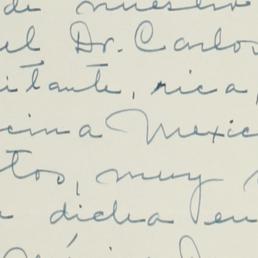 de nuestro
el Dr. Carlos
itante, rica,
cina Mexic
tos, muy
a dicha en